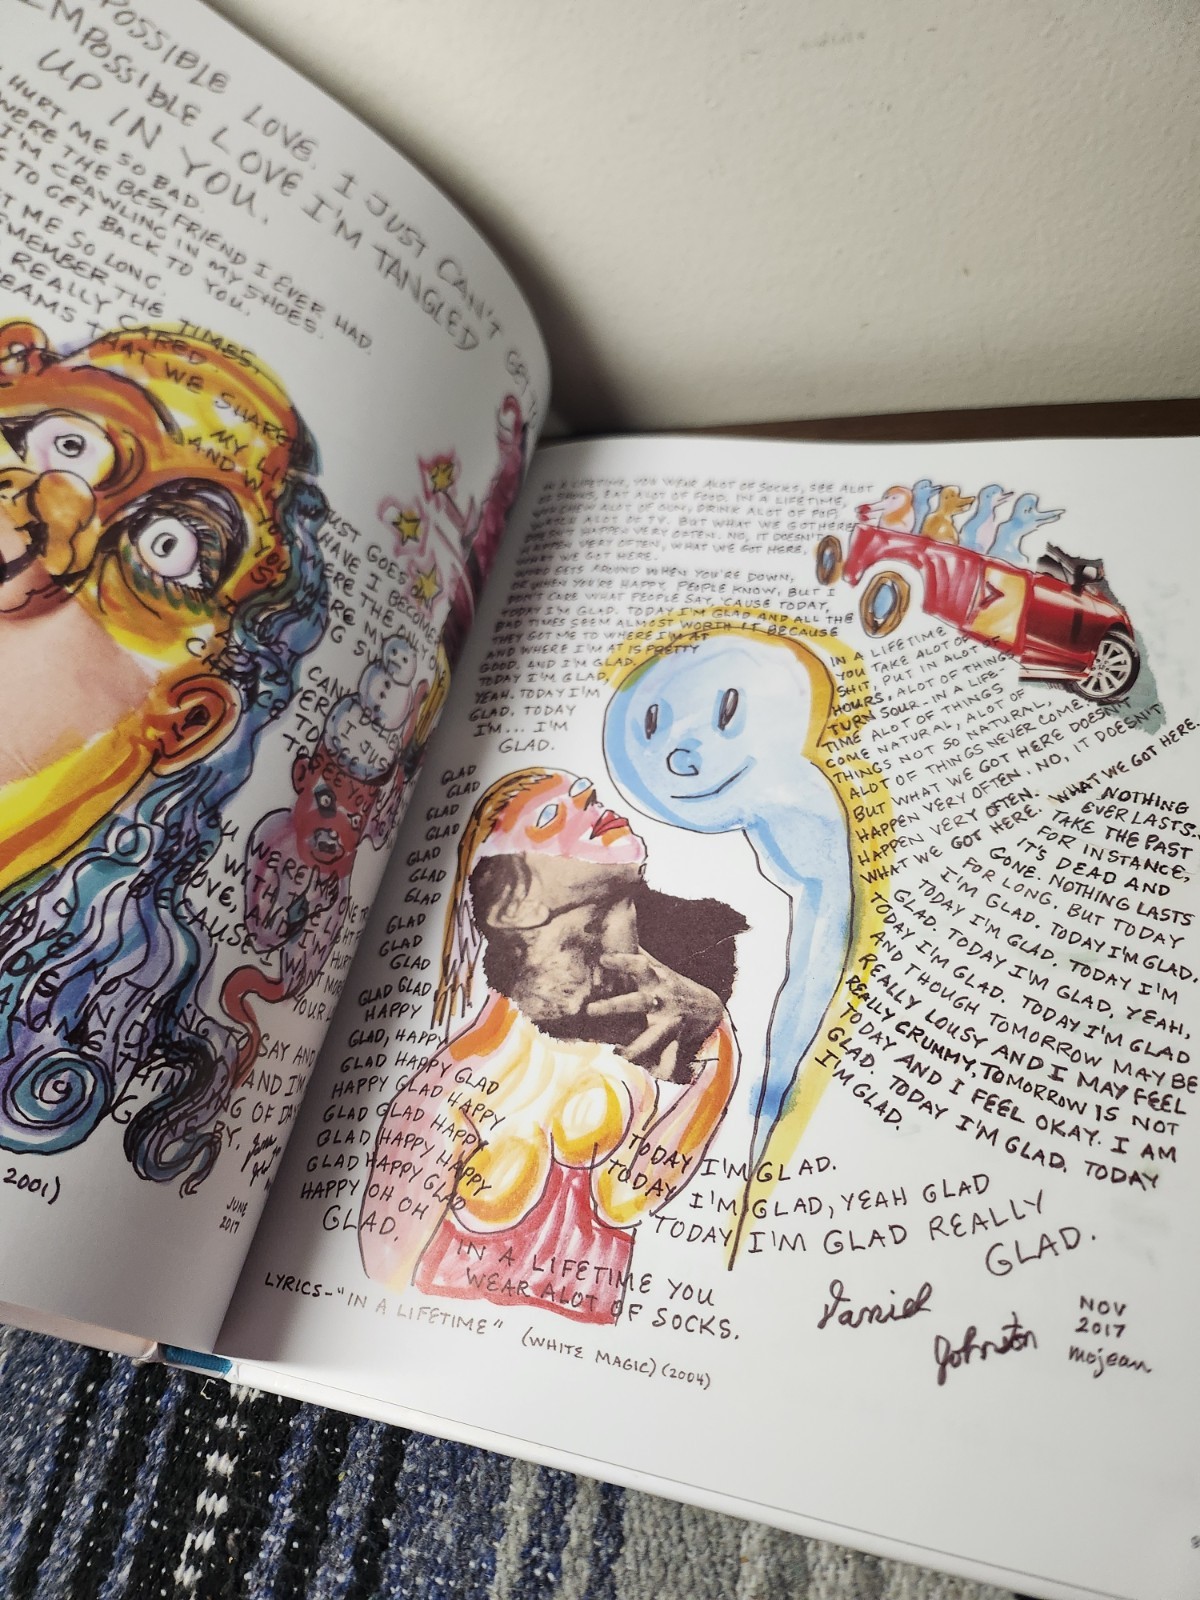 POSSIBLE LOVE. I JUST CAN'T GET
IMPOSSIBLE LOVE I'M TANGLED
UP IN YOU.
HURT ME SO BAD.
WERE THE BEST FRIEND I EVER HAD.
I'M CRAWLING IN MY SHOES.
TO GET BACK TO YOU.
ME SO LONG.
REMEMBER THE TIMES
REALLY CARED.
THAT WE SHARE
MY
AND
JUST GOES
HAVE I BECOME
WERE THE ONLY
MY
SUN
I JUST
TO
SEE YOU
YOU WERE
WITH THE LIGHT
LOVE, AND I'M HURT
BECAUSE I WANT
YOUR
SAY AND
AND I'M
ING OF DAY
BY.
2001)
JUNE
2017
IN A LIFETIME, YOU WEAR ALOT OF SOCKS, SEE ALOT
EAT ALOT OF FOOD. IN A LIFETIME,
YOU CHEW ALOT OF GUM, DRINK ALOT OF POP,
WATCH ALOT OF TV. BUT WHAT WE GOT HERE
DOESN'T HAPPEN VERY OFTEN. NO, IT DOESN'T
HAPPEN VERY OFTEN, WHAT WE GOT HERE.
WHAT WE GOT HERE.
WORD GETS AROUND WHEN YOU'RE DOWN,
OR WHEN YOU'RE HAPPY, PEOPLE KNOW, BUT I
DON'T CARE WHAT PEOPLE SAY, 'CAUSE TODAY,
TODAY I'M GLAD. TODAY I'M GLAD AND ALL THE
BAD TIMES SEEM ALMOST WORTH IT BECAUSE
THEY GOT ME TO WHERE I'M AT
AND WHERE I'M AT IS PRETTY
GOOD. AND I'M GLAD.
TODAY I'M GLAD,
YEAH. TODAY I'M
GLAD. TODAY
I'M... I'M
GLAD.
GLAD
GLAD
GLAD
GLAD
GLAD
GLAD
GLAD
GLAD
GLAD
GLAD
GLAD GLAD
HAPPY
GLAD, HAPPY
GLAD HAPPY GLAD
HAPPY GLAD HAPPY
GLAD GLAD HAPPY
GLAD HAPPY HAPPY
GLAD HAPPY GLAD
HAPPY OH OH
GLAD.
IN A LIFETIME
YOU TAKE ALOT OF
SHIT, PUT IN ALOT OF
HOURS, ALOT OF THINGS
TURN SOUR - IN A LIFE-
TIME ALOT OF THINGS
COME NATURAL, ALOT OF
THINGS NOT SO NATURAL,
ALOT OF THINGS NEVER COME.
BUT WHAT WE GOT HERE DOESN'T
HAPPEN VERY OFTEN. NO, IT DOESN'T
HAPPEN VERY OFTEN. WHAT WE GOT HERE.
WHAT WE GOT HERE. NOTHING
EVER LASTS.
TAKE THE PAST
FOR INSTANCE,
IT'S DEAD AND
GONE. NOTHING LASTS
FOR LONG. BUT TODAY
I'M GLAD. TODAY I'M GLAD.
TODAY I'M GLAD. TODAY I'M
GLAD. TODAY I'M GLAD, YEAH,
TODAY I'M GLAD. TODAY I'M GLAD
AND THOUGH TOMORROW MAY BE
REALLY LOUSY AND I MAY FEEL
REALLY CRUMMY, TOMORROW IS NOT
TODAY AND I FEEL OKAY. I AM
GLAD. TODAY I'M GLAD. TODAY
I'M GLAD.
TODAY I'M GLAD.
TODAY I'M GLAD, YEAH GLAD
TODAY I'M GLAD REALLY
GLAD.
IN A LIFETIME YOU
WEAR ALOT OF SOCKS.
LYRICS - "IN A LIFETIME" (WHITE MAGIC) (2004)
Daniel
Johnston
NOV
2017
mojean